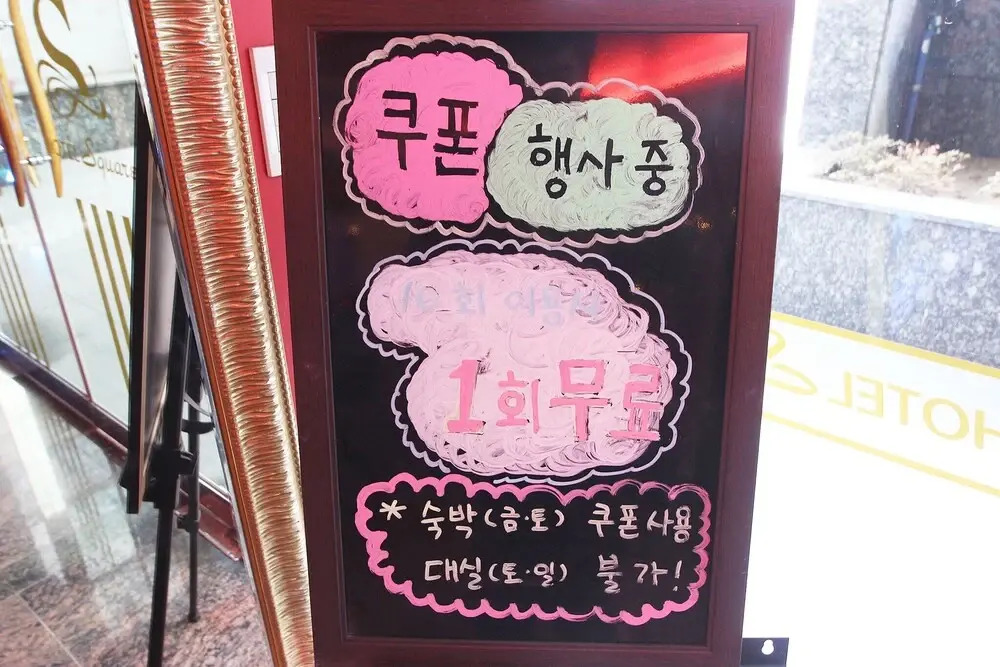 쿠폰 행사 중
10회 이용시
1회 무료
* 숙박(금·토) 쿠폰사용
대실(토·일) 불가!
HOTEL